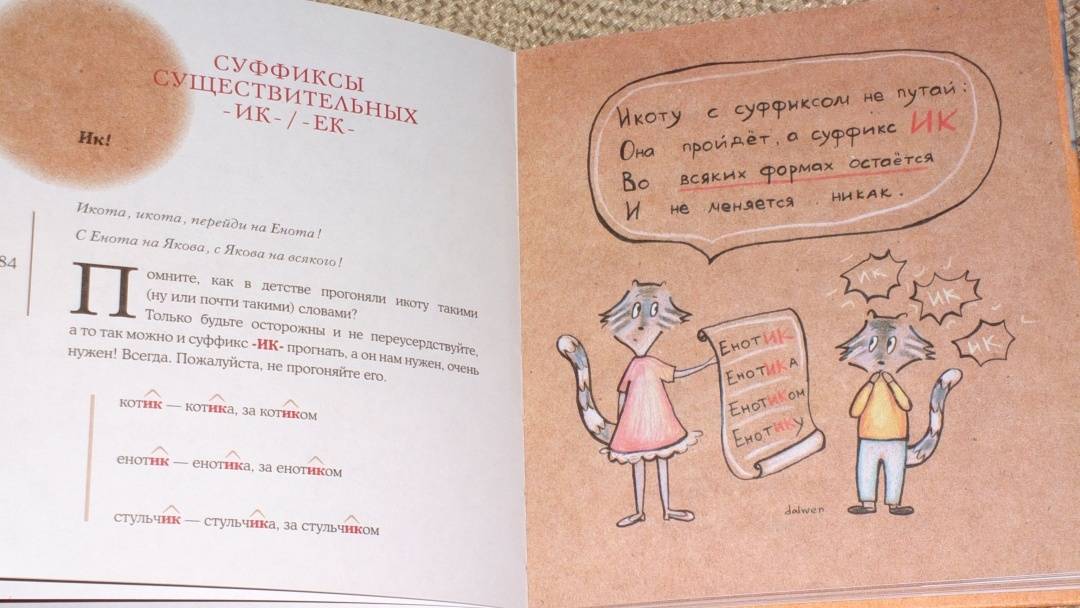 СУФФИКСЫ
СУЩЕСТВИТЕЛЬНЫХ
-ИК- / -ЕК-
Ик!
Икота, икота, перейди на Енота!
С Енота на Якова, с Якова на всякого!
84
Помните, как в детстве прогоняли икоту такими
(ну или почти такими) словами?
Только будьте осторожны и не переусердствуйте,
а то так можно и суффикс -ИК- прогнать, а он нам нужен, очень
нужен! Всегда. Пожалуйста, не прогоняйте его.
котик — котика, за котиком
енотик — енотика, за енотиком
стульчик — стульчика, за стульчиком
Икоту с суффиксом не путай:
Она пройдёт, а суффикс ИК
Во всяких формах остаётся
И не меняется никак.
ЕнотИК
ЕнотИКа
ЕнотИКом
ЕнотИКу
ИК
ИК
ИК
dalwen